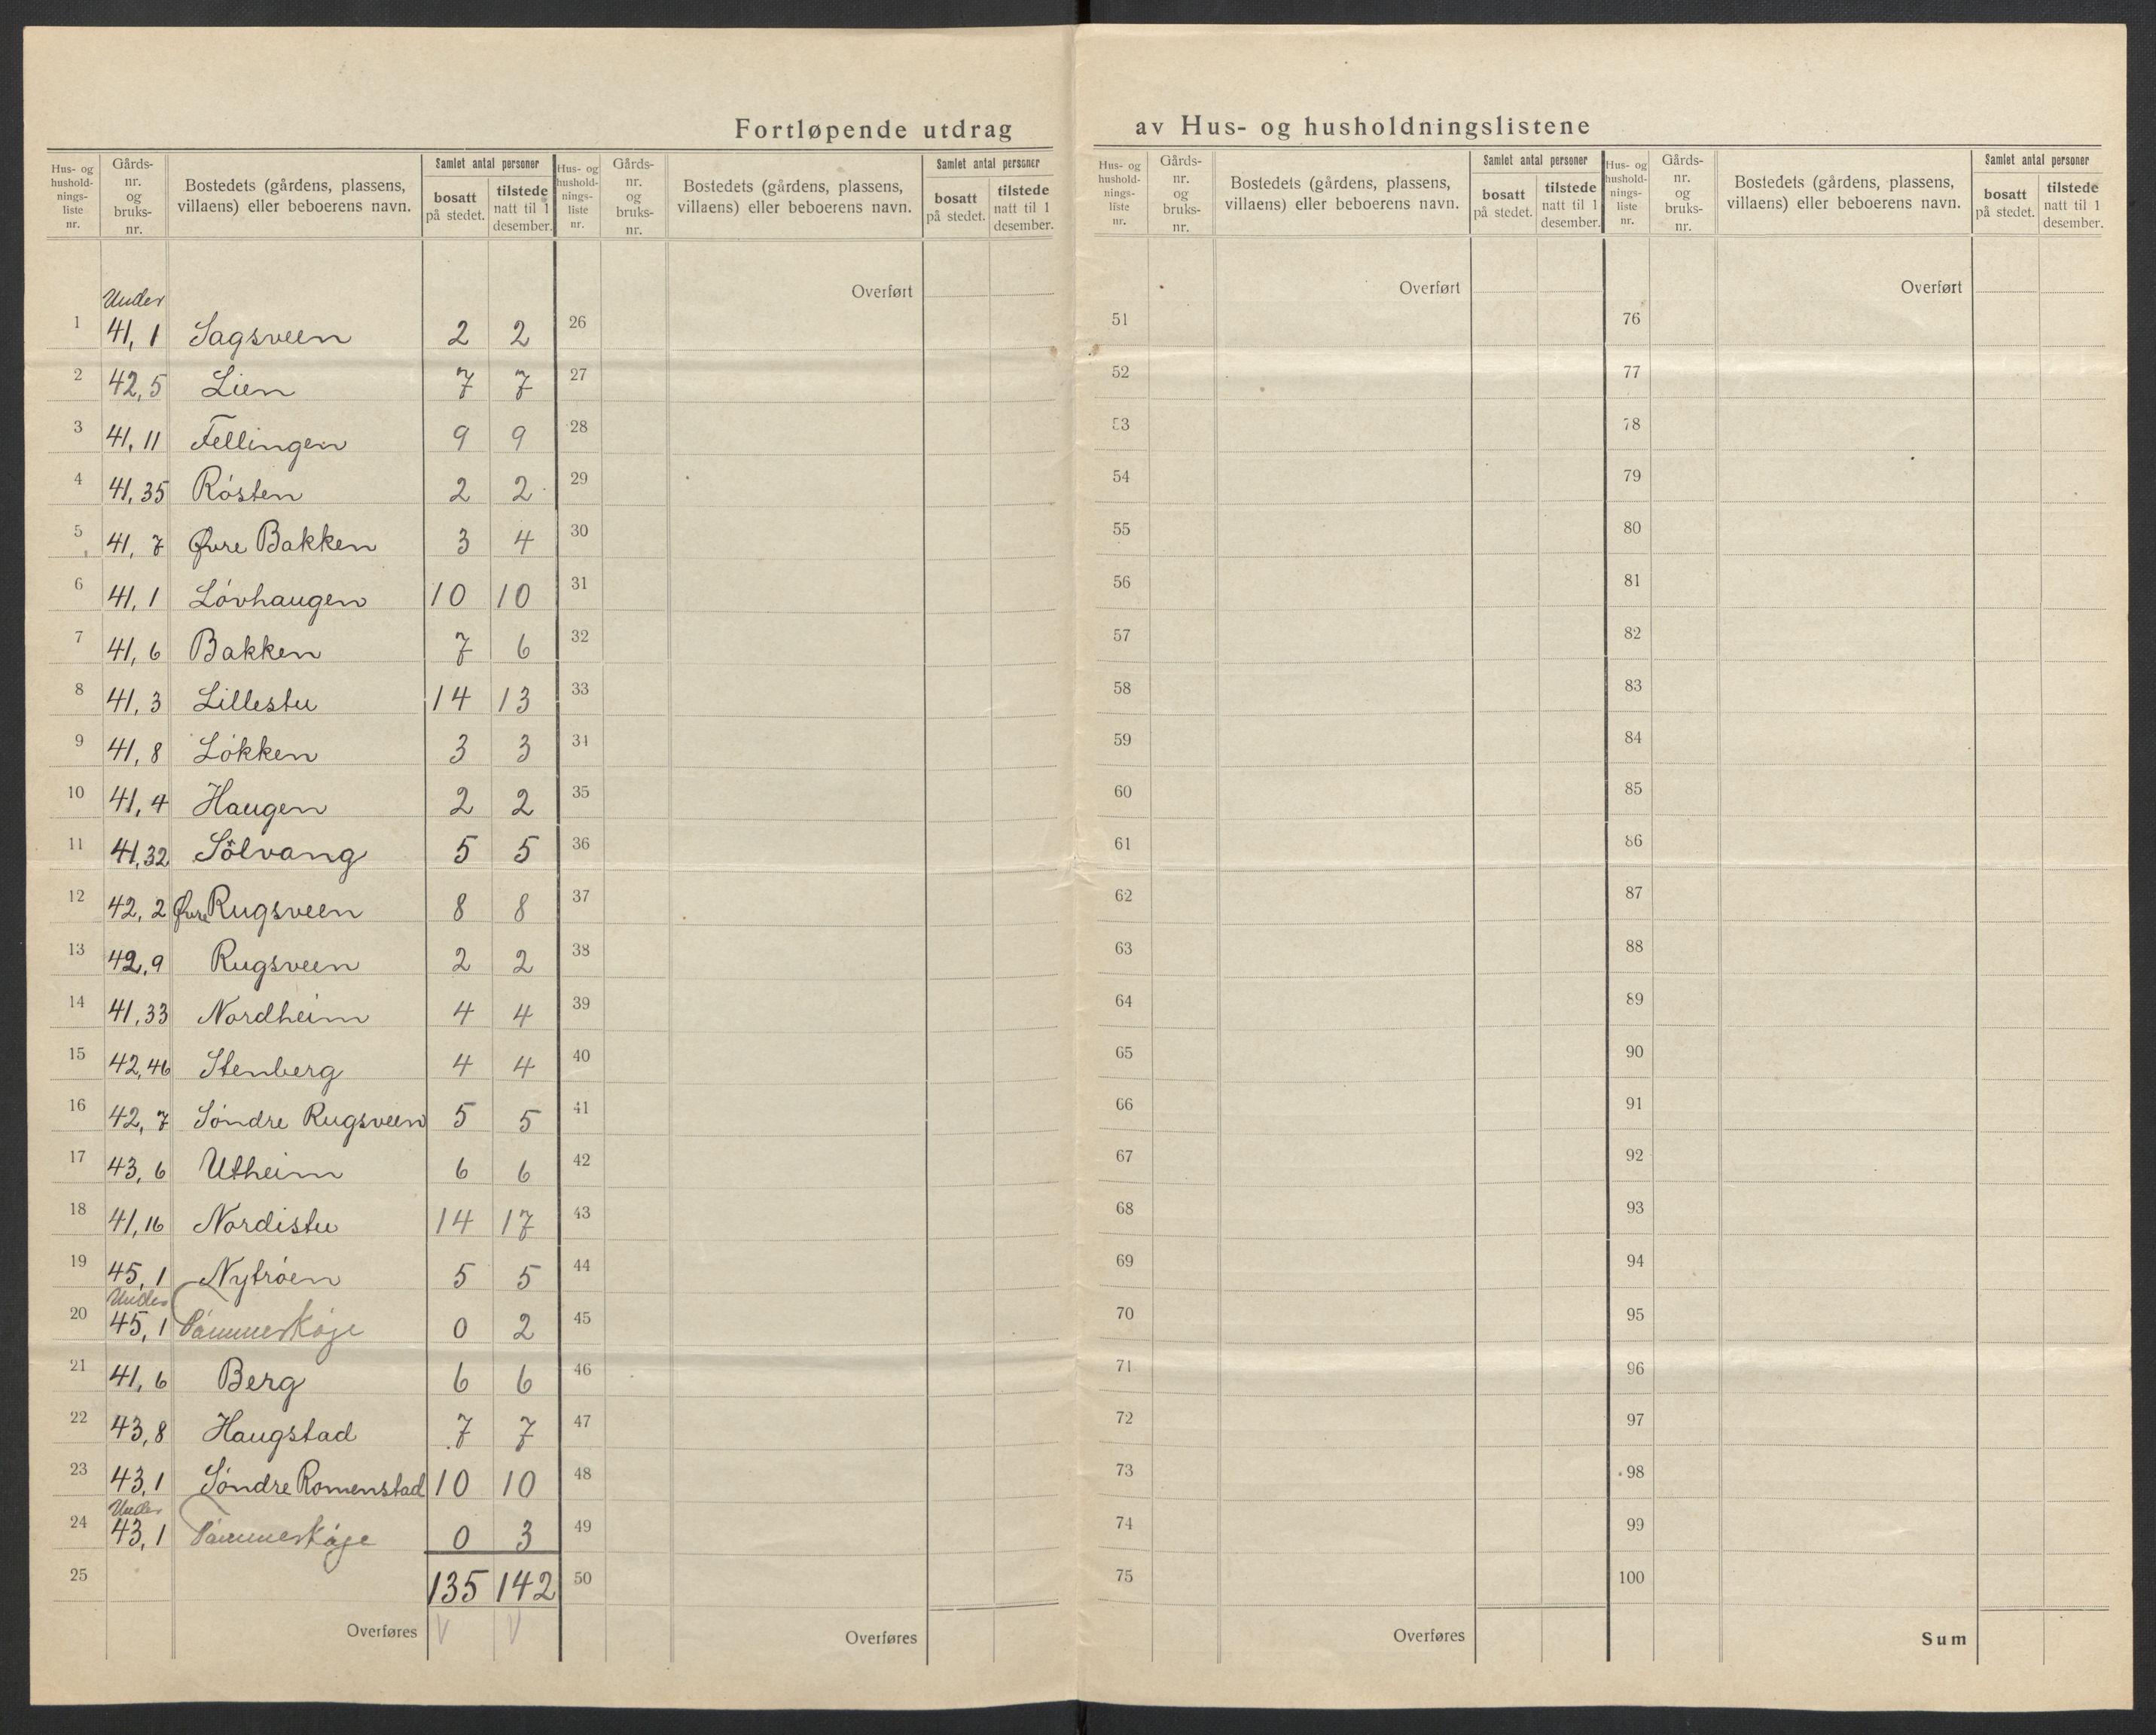 Fortløpende utdrag av Hus- og husholdningslistene
Hus- og hushold- nings- liste nr. Gårds- nr. og bruks- nr. Bostedets (gårdens, plassens, villaens) eller beboerens navn. Samlet antal personer bosatt på stedet. tilstede natt til 1 desember.
Hus- og hushold- nings- liste nr. Gårds- nr. og bruks- nr. Bostedets (gårdens, plassens, villaens) eller beboerens navn. Samlet antal personer bosatt på stedet. tilstede natt til 1 desember.
Hus- og hushold- nings- liste nr. Gårds- nr. og bruks- nr. Bostedets (gårdens, plassens, villaens) eller beboerens navn. Samlet antal personer bosatt på stedet. tilstede natt til 1 desember.
Hus- og hushold- nings- liste nr. Gårds- nr. og bruks- nr. Bostedets (gårdens, plassens, villaens) eller beboerens navn. Samlet antal personer bosatt på stedet. tilstede natt til 1 desember.
Overført Overført Overført
Under
1 41, 1 Sagsveen 2 2 26 51 76
2 42, 5 Lien 7 7 27 52 77
3 41, 11 Fellingen 9 9 28 53 78
4 41, 35 Røsten 2 2 29 54 79
5 41, 7 Øvre Bakken 3 4 30 55 80
6 41, 1 Løvhaugen 10 10 31 56 81
7 41, 6 Bakken 7 6 32 57 82
8 41, 3 Lillestu 14 13 33 58 83
9 41, 8 Løkken 3 3 34 59 84
10 41, 4 Haugen 2 2 35 60 85
11 41, 32 Sølvang 5 5 36 61 86
12 42, 2 Øvre Rugsveen 8 8 37 62 87
13 42, 9 Rugsveen 2 2 38 63 88
14 41, 33 Nordheim 4 4 39 64 89
15 42, 46 Stenberg 4 4 40 65 90
16 42, 7 Søndre Rugsveen 5 5 41 66 91
17 43, 6 Utheim 6 6 42 67 92
18 41, 16 Nordistu 14 17 43 68 93
19 45, 1 Nytrøen 5 5 44 69 94
Under
20 45, 1 Tømmerkøje 0 2 45 70 95
21 41, 6 Berg 6 6 46 71 96
22 43, 8 Haugstad 7 7 47 72 97
23 43, 1 Søndre Romenstad 10 10 48 73 98
Under
24 43, 1 Tømmerkøje 0 3 49 74 99
25 135 142 50 75 100
Overføres V V Overføres Overføres Sum